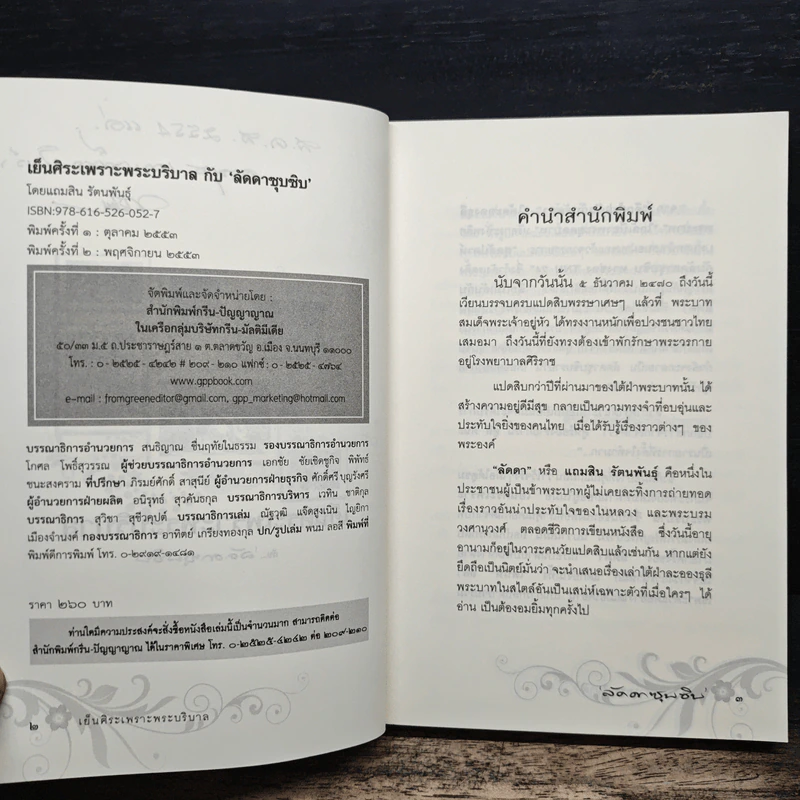 เย็นศิระเพราะพระบริบาล กับ ‘ลัดดาซุบซิบ’
โดยแถมสิน รัตนพันธุ์
ISBN:978-616-526-052-7
พิมพ์ครั้งที่ ๑ : ตุลาคม ๒๕๕๓
พิมพ์ครั้งที่ ๒ : พฤศจิกายน ๒๕๕๓
จัดพิมพ์และจัดจำหน่ายโดย :
สำนักพิมพ์กรีน-ปัญญาญาณ
ในเครือกลุ่มบริษัทกรีน-มัลติมีเดีย
๕๐/๓๓ ม.๕ ถ.ประชาราษฎร์สาย ๑ ต.ตลาดขวัญ อ.เมือง จ.นนทบุรี ๑๑๐๐๐
โทร. : ๐-๒๕๒๕-๔๒๔๒ # ๒๐๙-๒๑๐ แฟกซ์ : ๐-๒๕๒๕-๔๗๖๔
www.gppbook.com
e-mail : fromgreeneditor@gmail.com, gpp_marketing@hotmail.com
บรรณาธิการอำนวยการ สนธิญาณ ชื่นฤทัยในธรรม รองบรรณาธิการอำนวยการ
โกศล โพธิ์สุวรรณ ผู้ช่วยบรรณาธิการอำนวยการ เอกชัย ชัยเชิดชูกิจ พิพัทธ์
ชนะสงคราม ที่ปรึกษา ภิรมย์ศักดิ์ สาสุนีย์ ผู้อำนวยการฝ่ายธุรกิจ ศักดิ์ศรี บุญรังศรี
ผู้อำนวยการฝ่ายผลิต อนิรุทธ์ สุวคันธกุล บรรณาธิการบริหาร เวทิน ชาติกุล
บรรณาธิการ สุวิชา สุชีวคุปต์ บรรณาธิการเล่ม ณัฐวุฒิ แจ๊ดสูงเนิน โญยิกา
เมืองจำนงค์ กองบรรณาธิการ อาทิตย์ เกรียงทองกุล ปก/รูปเล่ม พนม ลอสี พิมพ์ที่
พิมพ์ดีการพิมพ์ โทร. ๐-๒๙๑๙-๑๔๘๑
ราคา ๒๖๐ บาท
ท่านใดมีความประสงค์จะสั่งซื้อหนังสือเล่มนี้เป็นจำนวนมาก สามารถติดต่อ
สำนักพิมพ์กรีน-ปัญญาญาณ ได้ในราคาพิเศษ โทร. ๐-๒๕๒๕-๔๒๔๒ ต่อ ๒๐๙-๒๑๐
๒ เย็นศิระเพราะพระบริบาล
คำนำสำนักพิมพ์
นับจากวันนั้น ๕ ธันวาคม ๒๔๗๐ ถึงวันนี้
เวียนบรรจบครบแปดสิบพรรษาเศษๆ แล้วที่ พระบาท
สมเด็จพระเจ้าอยู่หัว ได้ทรงงานหนักเพื่อปวงชนชาวไทย
เสมอมา ถึงวันนี้ที่ยังทรงต้องเข้าพักรักษาพระวรกาย
อยู่โรงพยาบาลศิริราช
แปดสิบกว่าปีที่ผ่านมาของใต้ฝ่าพระบาทนั้น ได้
สร้างความอยู่ดีมีสุข กลายเป็นความทรงจำที่อบอุ่นและ
ประทับใจยิ่งของคนไทย เมื่อได้รับรู้เรื่องราวต่างๆ ของ
พระองค์
“ลัดดา” หรือ แถมสิน รัตนพันธุ์ คือหนึ่งใน
ประชาชนผู้เป็นข้าพระบาทผู้ไม่เคยละทิ้งการถ่ายทอด
เรื่องราวอันน่าประทับใจของในหลวง และพระบรม
วงศานุวงศ์ ตลอดชีวิตการเขียนหนังสือ ซึ่งวันนี้อายุ
อานามก็อยู่ในวาระคนวัยแปดสิบแล้วเช่นกัน หากแต่ยัง
ยึดถือเป็นนิตย์มั่นว่า จะนำเสนอเรื่องเล่าใต้ฝ่าละอองธุลี
พระบาทในสไตล์อันเป็นเสน่ห์เฉพาะตัวที่เมื่อใครๆ ได้
อ่าน เป็นต้องอมยิ้มทุกครั้งไป
‘ลัดดาซุบซิบ’ ๓